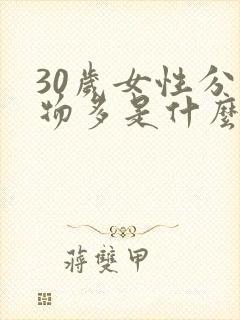 30歲女性分
物多是什麼
蔣雙甲